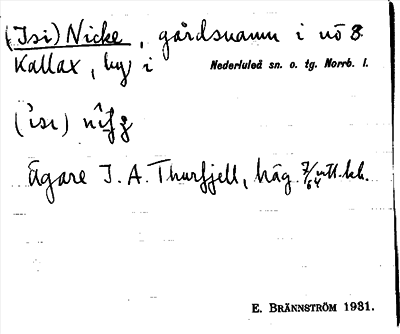 (Isi) Nicke, gårdsnamn i nö 8
Kallax, by i Nederluleå sn. o. tg. Norrb. l.
Ägare J. A. Thurfjell, häg. 7/64 mtl.
E. BRÄNNSTRÖM 1931.